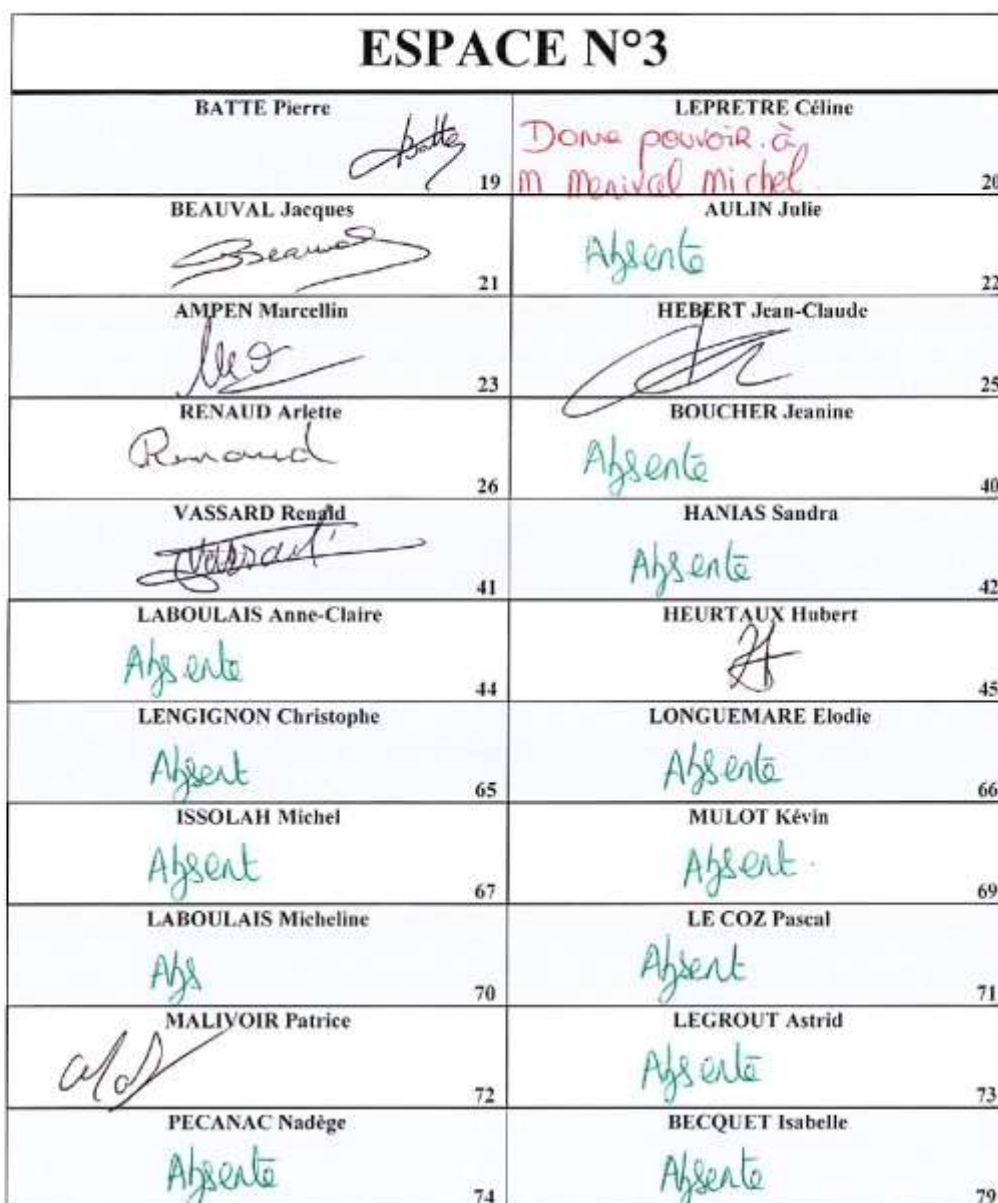 ESPACE N°3
BATTE Pierre
Batte
19
LEPRETRE Céline
Donne pouvoir à
M Menival Michel
20
BEAUVAL Jacques
Beauval
21
AULIN Julie
Absente
22
AMPEN Marcellin
23
HEBERT Jean-Claude
25
RENAUD Arlette
Renaud
26
BOUCHER Jeanine
Absente
40
VASSARD Renald
Vassard
41
HANIAS Sandra
Absente
42
LABOULAIS Anne-Claire
Absente
44
HEURTAUX Hubert
45
LENGIGNON Christophe
Absent
65
LONGUEMARE Elodie
Absente
66
ISSOLAH Michel
Absent
67
MULOT Kévin
Absent.
69
LABOULAIS Micheline
Abs
70
LE COZ Pascal
Absent
71
MALIVOIR Patrice
72
LEGROUT Astrid
Absente
73
PECANAC Nadège
Absente
74
BECQUET Isabelle
Absente
79